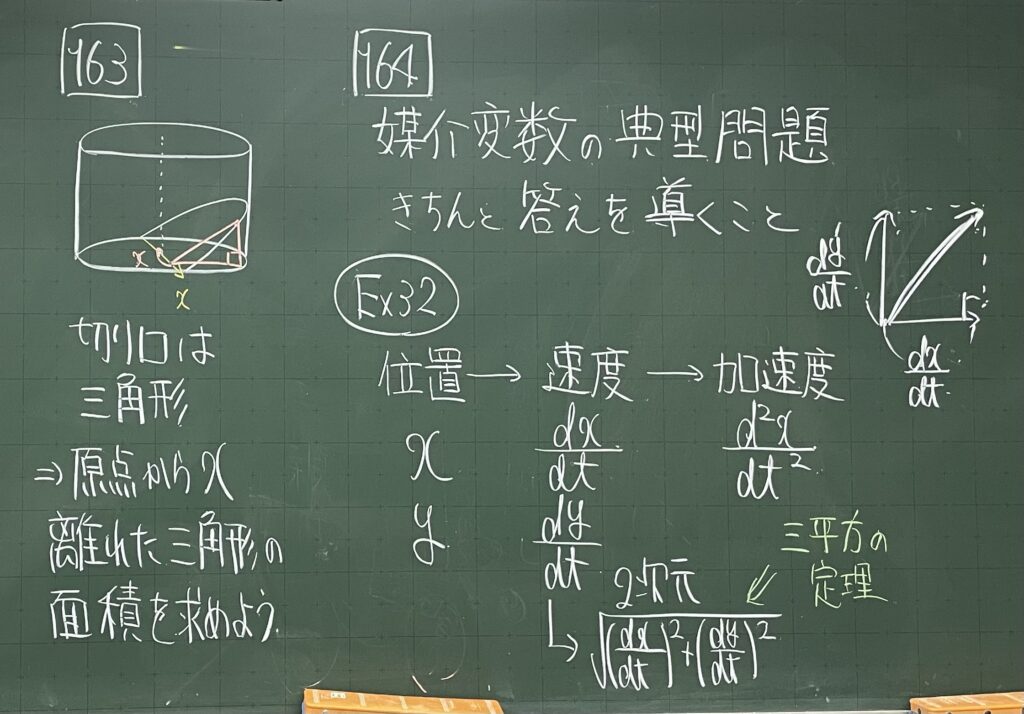 163
x
x
切り口は
三角形
⇒原点からx
離れた三角形の
面積を求めよう
164
媒介変数の典型問題
きちんと答えを導くこと
Ex32
位置→速度→加速度
x dx/dt d²x/dt²
y dy/dt
2次元
↳ √((dx/dt)²+(dy/dt)²)
三平方の
定理
dy/dt
dx/dt